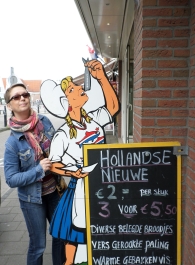 HOLLANDSE
NIEUWE
€ 2,= PER STUK
3 VOOR € 5,50
DIVERSE BELEGDE BROODJES
VERS GEROOKTE PALING
WARME GEBAKKEN VIS